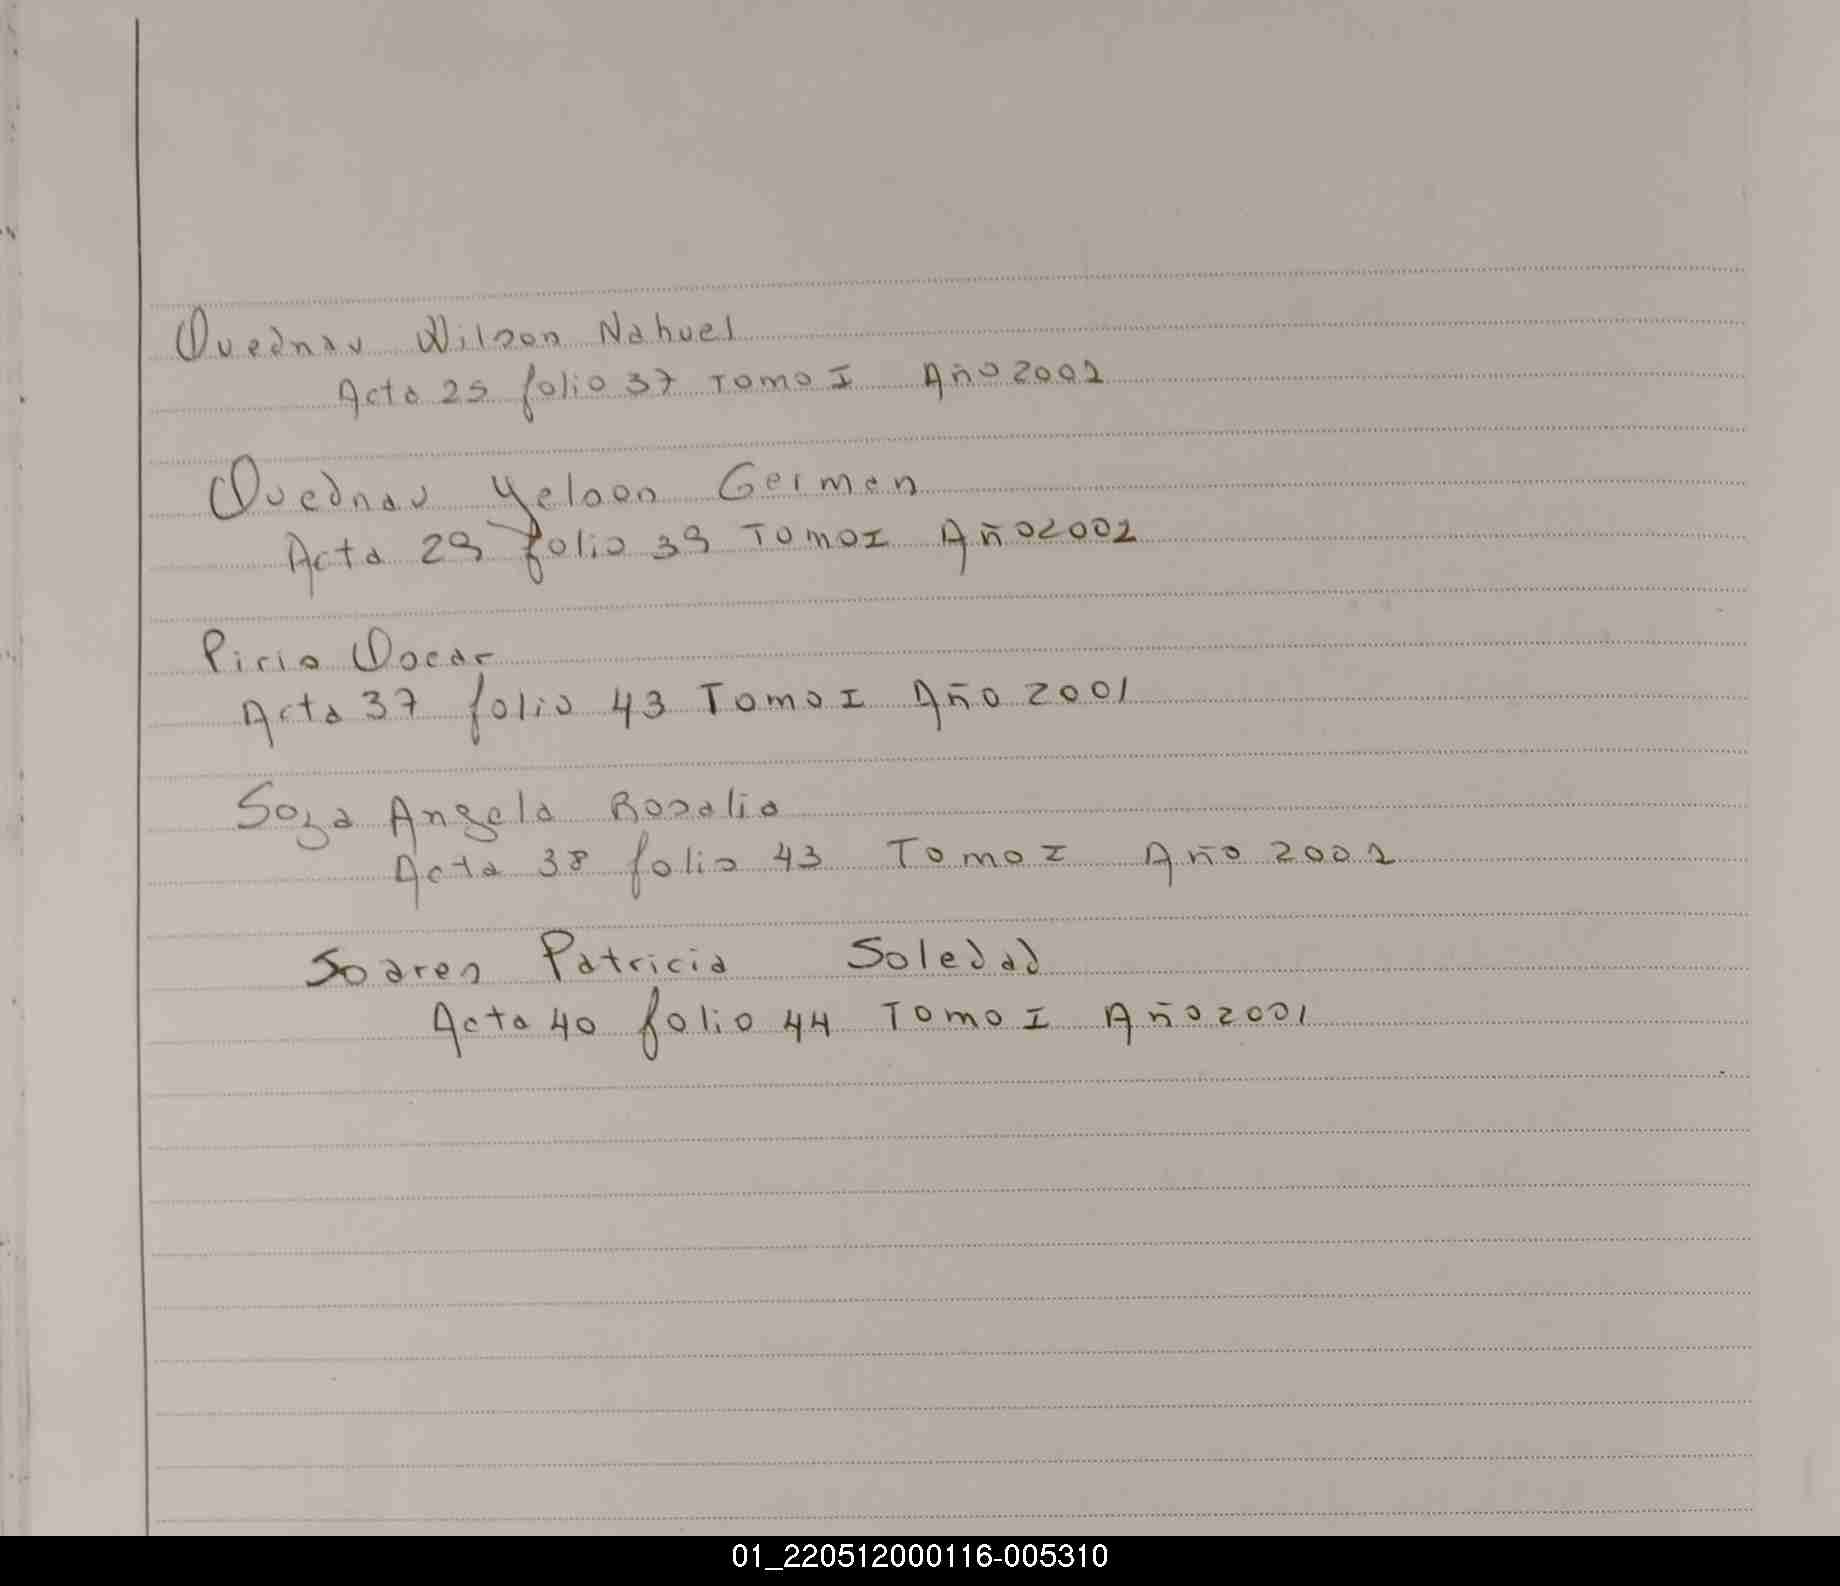 Quednau Wilson Nahuel
Acta 25 folio 37 Tomo I Año 2002
Quednau Yelson German
Acta 29 folio 39 Tomo I Año 2002
Pirio Oscar
Acta 37 folio 43 Tomo I Año 2001
Soza Angela Rosalia
Acta 38 folio 43 Tomo I Año 2002
Soares Patricia Soledad
Acta 40 folio 44 Tomo I Año 2001
01_220512000116-005310